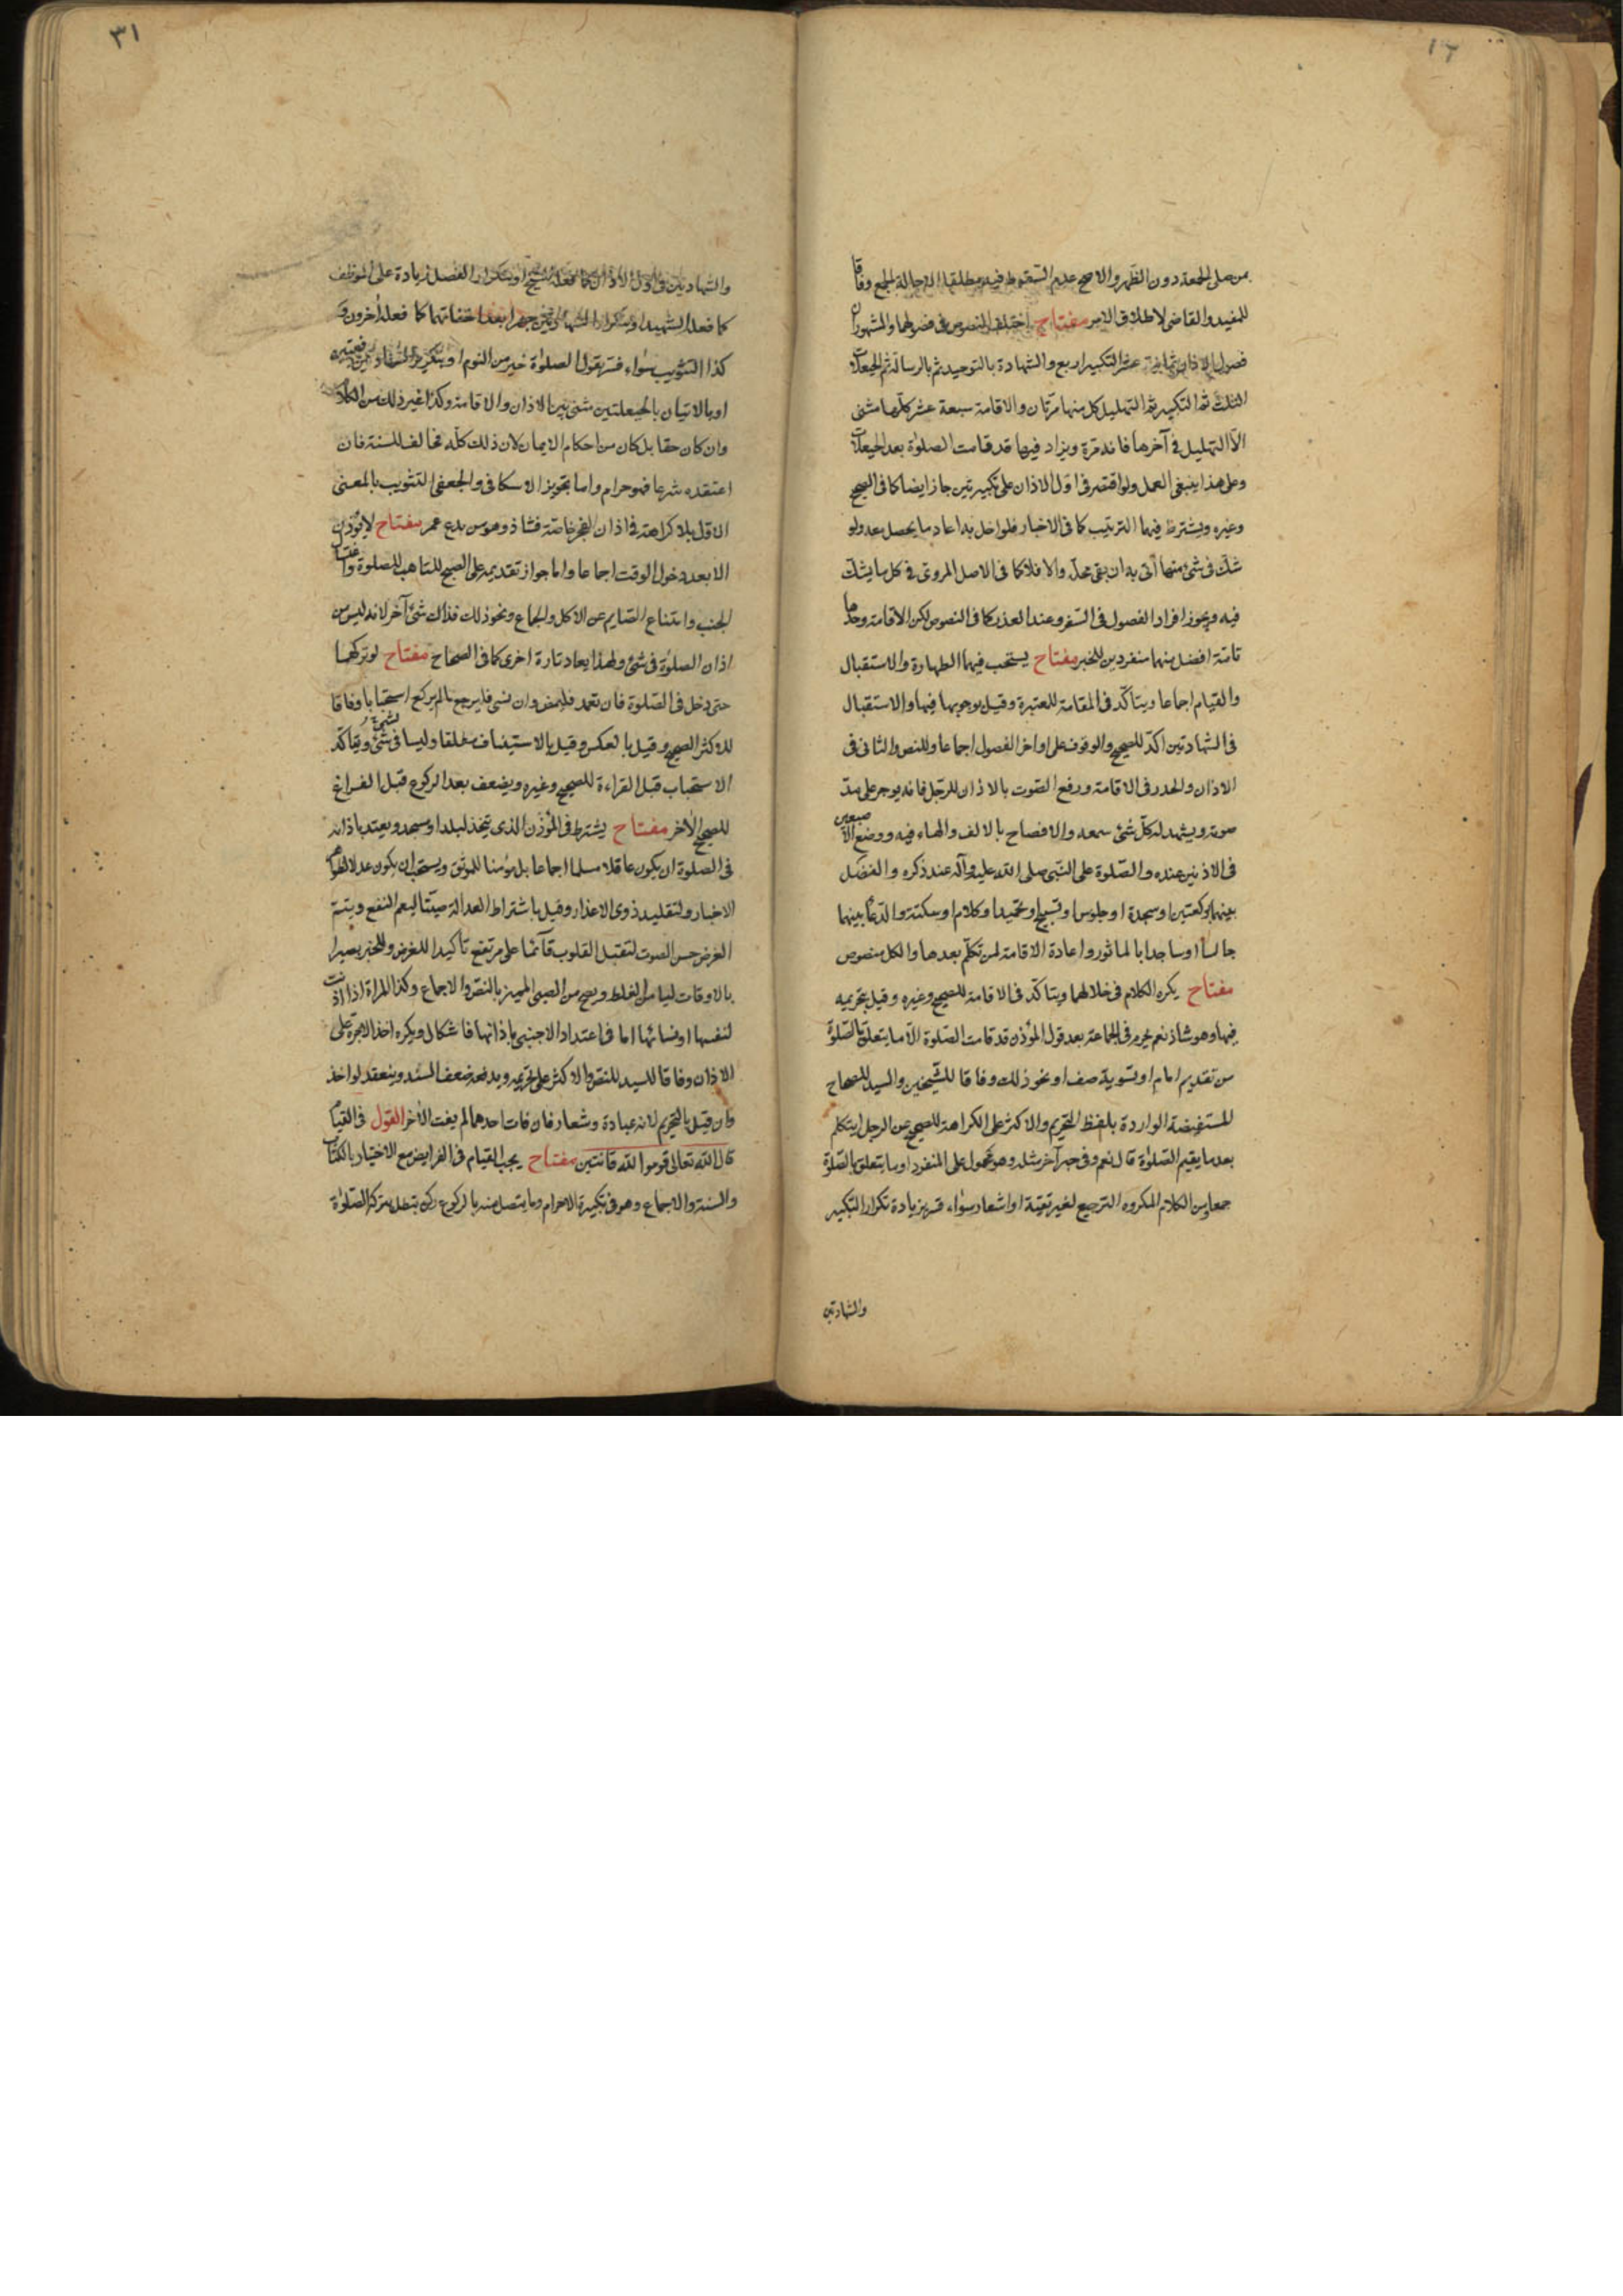 ١٦
بمن صلى الجمعة دون الظهر والاصح عدم السقوط فيه مطلقا الا حالة الجمع وفاقا
للمفيد والقاضى لاطلاق الامر مفتاح اختلف النصوص فى فصولهما والمشهور ان
فصول الاذان ثمانية عشر التكبير اربع والشهادة بالتوحيد ثم بالرسالة ثم الحيعلات
الثلث ثم التكبير ثم التهليل كل منها مرتان والاقامة سبعة عشر كلها مثنى
الا التهليل فى آخرها فانه مرة ويزاد فيها قد قامت الصلوة بعد الحيعلات
وعلى هذا ينبغى العمل ولو اقتصر فى اول الاذان على تكبيرتين جاز ايضا كما فى الصحيح
وغيره ويشترط فيهما الترتيب كما فى الاخبار فلو اخل به اعاد ما يحصل معه ولو
شك فى شئ منهما أتى به ان بقى محله والا فلا كما فى الاصل المروى فى كل ما يشك
فيه ويجوز افراد الفصول فى السفر وعند العذر كما فى النصوص لكن الاقامة وحدها
تامة افضل منهما منفردين للخبر مفتاح يستحب فيهما الطهارة والاستقبال
والقيام اجماعا ويتأكد فى المقامة للمعتبرة وقيل بوجوبها فيها والاستقبال
فى الشهادتين اكد للصحيح والوقوف على اواخر الفصول اجماعا وللنص والثانى فى
الاذان والحدر فى الاقامة ورفع الصوت بالاذان للرجل فانه يوجر على مد
صوته ويشهد له كل شئ سمعه والافصاح بالالف والهاء فيه ووضع الاصبعين
فى الاذنين عنده والصلوة على النبى صلى الله عليه وآله عند ذكره والفصل
بينهما بركعتين او سجدة او جلوس او تسبيح او تحميد او كلام او سكتة والدعا بينهما
جالسا او ساجدا بالماثور واعادة الاقامة لمن تكلم بعدها والكل منصوص
مفتاح يكره الكلام فى خلالهما ويتأكد فى الاقامة للصحيح وغيره وقيل بتحريمه
فيها وهو شاذ نعم يحرم فى الجماعة بعد قول المؤذن قد قامت الصلوة الا ما يتعلق بالصلوة
من تقديم امام او تسوية صف او نحو ذلك وفاقا للشيخين والسيد للصحاح
المستفيضة الواردة بلفظ التحريم والاكثر على الكراهة للصحيح عن الرجل ايتكلم
بعد ما يقيم الصلوة قال نعم وفى خبر آخر مثله وهو محمول على المنفرد او ما يتعلق بالصلوة
جمعا ومن الكلام المكروه الترجيع لغير تقية او اشعار سواء فسر بزيادة تكرار التكبير
والشهادتين
٣١
والشهادتين فى اول الاذان كما فعله الشيخ او بتكرار الفصل زيادة على الموظف
كما فعله الشهيد او بتكرار الشهادتين جهرا بعد اخفاتهما كما فعله آخرون و
كذا التثويب سواء فسر بقول الصلوة خير من النوم او بتكرير الشهادتين دفعتين
او بالاتيان بالحيعلتين مثنى بين الاذان والاقامة وكذا غير ذلك من الكلام
وان كان حقا بل كان من احكام الايمان لان ذلك كله مخالف للسنة فان
اعتقده شرعا فهو حرام واما تجويز الاسكافى والجعفى التثويب بالمعنى
الاول بلا كراهة فى اذان الفجر خاصة فشاذ وهو من بدع عمر مفتاح لا يؤذن
الا بعد دخول الوقت اجماعا واما جواز تقديمه على الصبح للتاهب للصلوة واغتسال
الجنب وامتناع الصايم عن الاكل والجماع ونحو ذلك فذاك شئ آخر لانه ليس من
اذان الصلوة فى شئ ولهذا يعاد تارة اخرى كما فى الصحاح مفتاح لو تركهما
حتى دخل فى الصلوة فان تعمد فليمض وان نسى فليرجع ما لم يركع استحبابا وفاقا
للاكثر للصحيح وقيل بالعكس وقيل بالاستيناف مطلقا وليسا فى شئ ويتاكد
الاستحباب قبل القراءة للصحيح وغيره ويضعف بعد الركوع قبل الفراغ
للصحيح الآخر مفتاح يشترط فى المؤذن الذى يتخذ لبلد او مسجد ويعتد باذانه
فى الصلوة ان يكون عاقلا مسلما اجماعا بل مؤمنا للموثق ويستحب ان يكون عدلا لظواهر
الاخبار ولتقليد ذوى الاعذار وقيل باشتراط العدالة صيتا ليعم النفع ويتم
الغرض حسن الصوت لتقبل القلوب قآئما على مرتفع تأكيدا للغرض وللخبر بصيرا
بالاوقات ليامن الغلط ويصح من الصبى المميز بالنص والاجماع وكذا المراة اذا اذنت
لنفسها او نسائها اما فى اعتداد الاجنبى باذانها فاشكال ويكره اخذ الاجرة على
الاذان وفاقا للسيد للنص والاكثر على تحريمه ويدفعه ضعف السند وينعقد لو اخذ
وان قيل بالتحريم لانه عبادة وشعار فان فات احدهما لم يفت الآخر القول فى القيام
قال الله تعالى قوموا لله قانتين مفتاح يجب القيام فى الفرايض مع الاختيار بالكتاب
والسنة والاجماع وهو فى تكبيرة الاحرام وما يتصل منه بالركوع ركن تبطل بتركه الصلوة